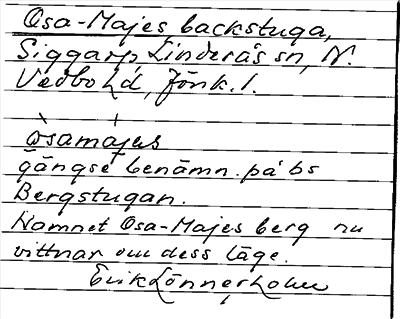 Osa-Majes backstuga,
Siggarp, Linderås sn, N.
Vedbo hd, Jönk. l.
òsamajus
gängse benämn. på bs
Bergstugan.
Namnet Osa-Majes berg nu
vittnar om dess läge.
Erik Lönnerholm